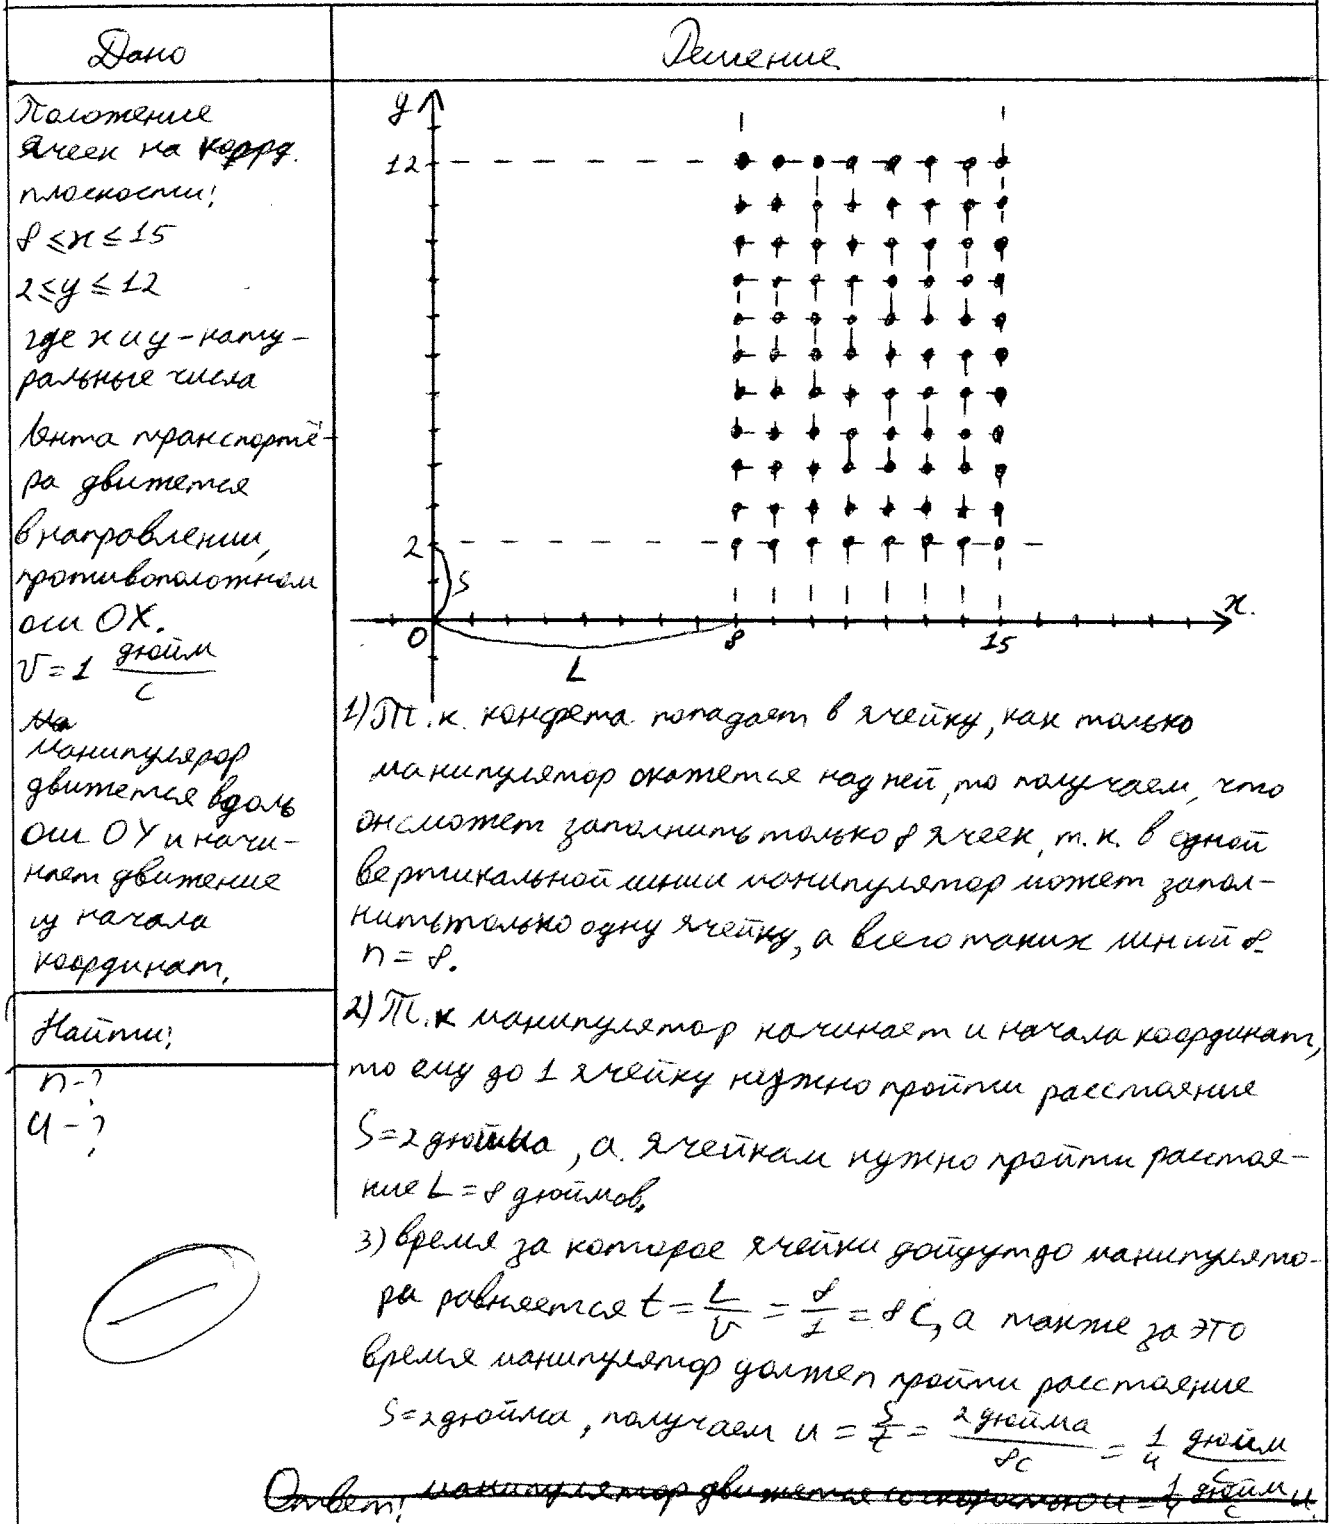 Дано
Решение
Положение
ячеек на коррд.
плоскости:
8 ≤ x ≤ 15
2 ≤ y ≤ 12
где x и y - нату-
ральные числа
Лента транспортё-
ра движется
в направлении,
противоположном
оси OX.
V = 1 дюйм/с
манипулярор
движется вдоль
оси OY и начи-
нает движение
из начала
координат.
Найти:
n - ?
u - ?
y
12
2
S
0
L
8
15
x.
1) Т.к. конфета попадает в ячейку, как только
манипулятор окажется над ней, то получаем, что
он сможет заполнить только 8 ячеек, т.к. в одной
вертикальной линии манипулятор может запол-
нить только одну ячейку, а всего таких линий 8.
n = 8.
2) Т.к манипулятор начинает и начала координат,
то ему до 1 ячейку нужно пройти расстояние
S = 2 дюйма, а ячейкам нужно пройти расстоя-
ние L = 8 дюймов.
3) время за которое ячейки дойдут до манипулято-
ра равняется t = L/V = 8/1 = 8 с, а также за это
время манипулятор должен пройти расстояние
S = 2 дюйма, получаем u = S/t = 2 дюйма/8с = 1/4 дюйм/с
Ответ: манипулятор движется со скоростью u = 1/4 дюйм/с и